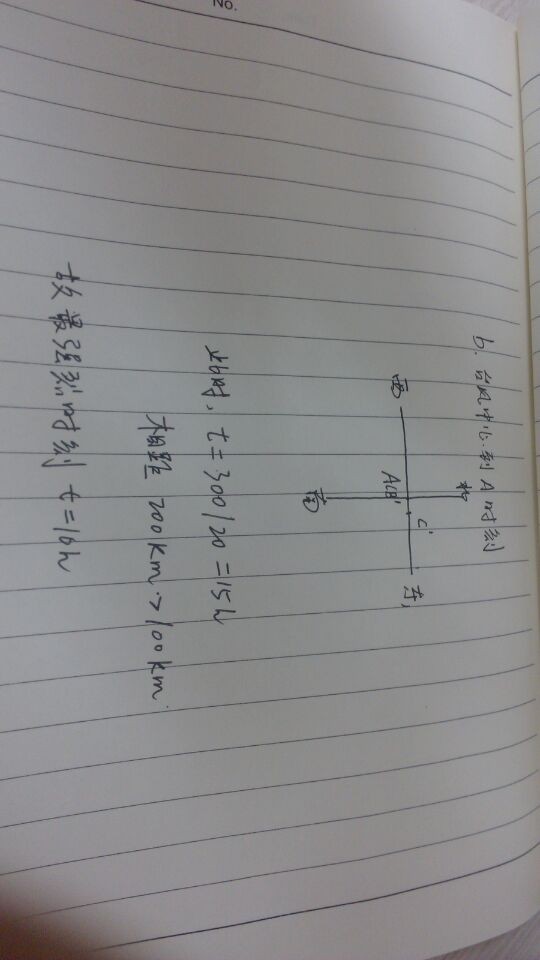 No.
b. 台风中心到A时刻
北
西
A(B')
C'
东
南
此时, t=300/20=15h
相距 200km>100km.
故最强烈时刻 t=10h